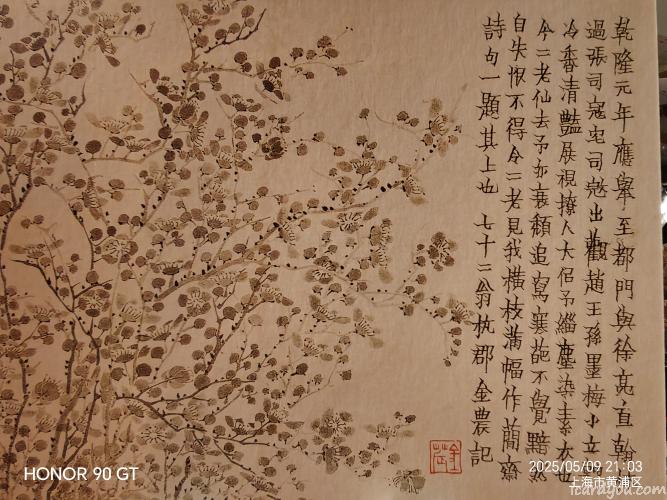 乾隆元年應舉至都門與徐亮直翰
過張司寇宅司寇出觀趙王孫墨梅小立
冷香清豔展視撩人大侶予緇塵染素衣
今二老仙去予亦衰顏追寫寒葩不覺黯
自失恨不得令二老見我橫枝滿幅作蕭齋
詩句一題其上也 七十二翁杭郡金農記
HONOR 90 GT
2025/05/09 21:03
上海市黄浦区
icarayou.com